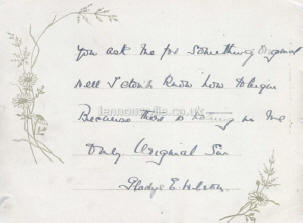 You ask me for Something Original
Well I don't know how to begin
Because there is nothing in me
Only Original Sin
Gladys E.
lennonville.co.uk